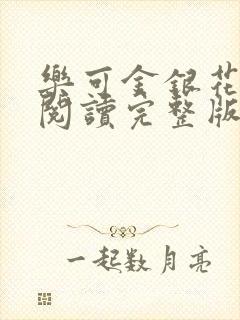 樂可金銀花
閱讀完整版
一起數月亮